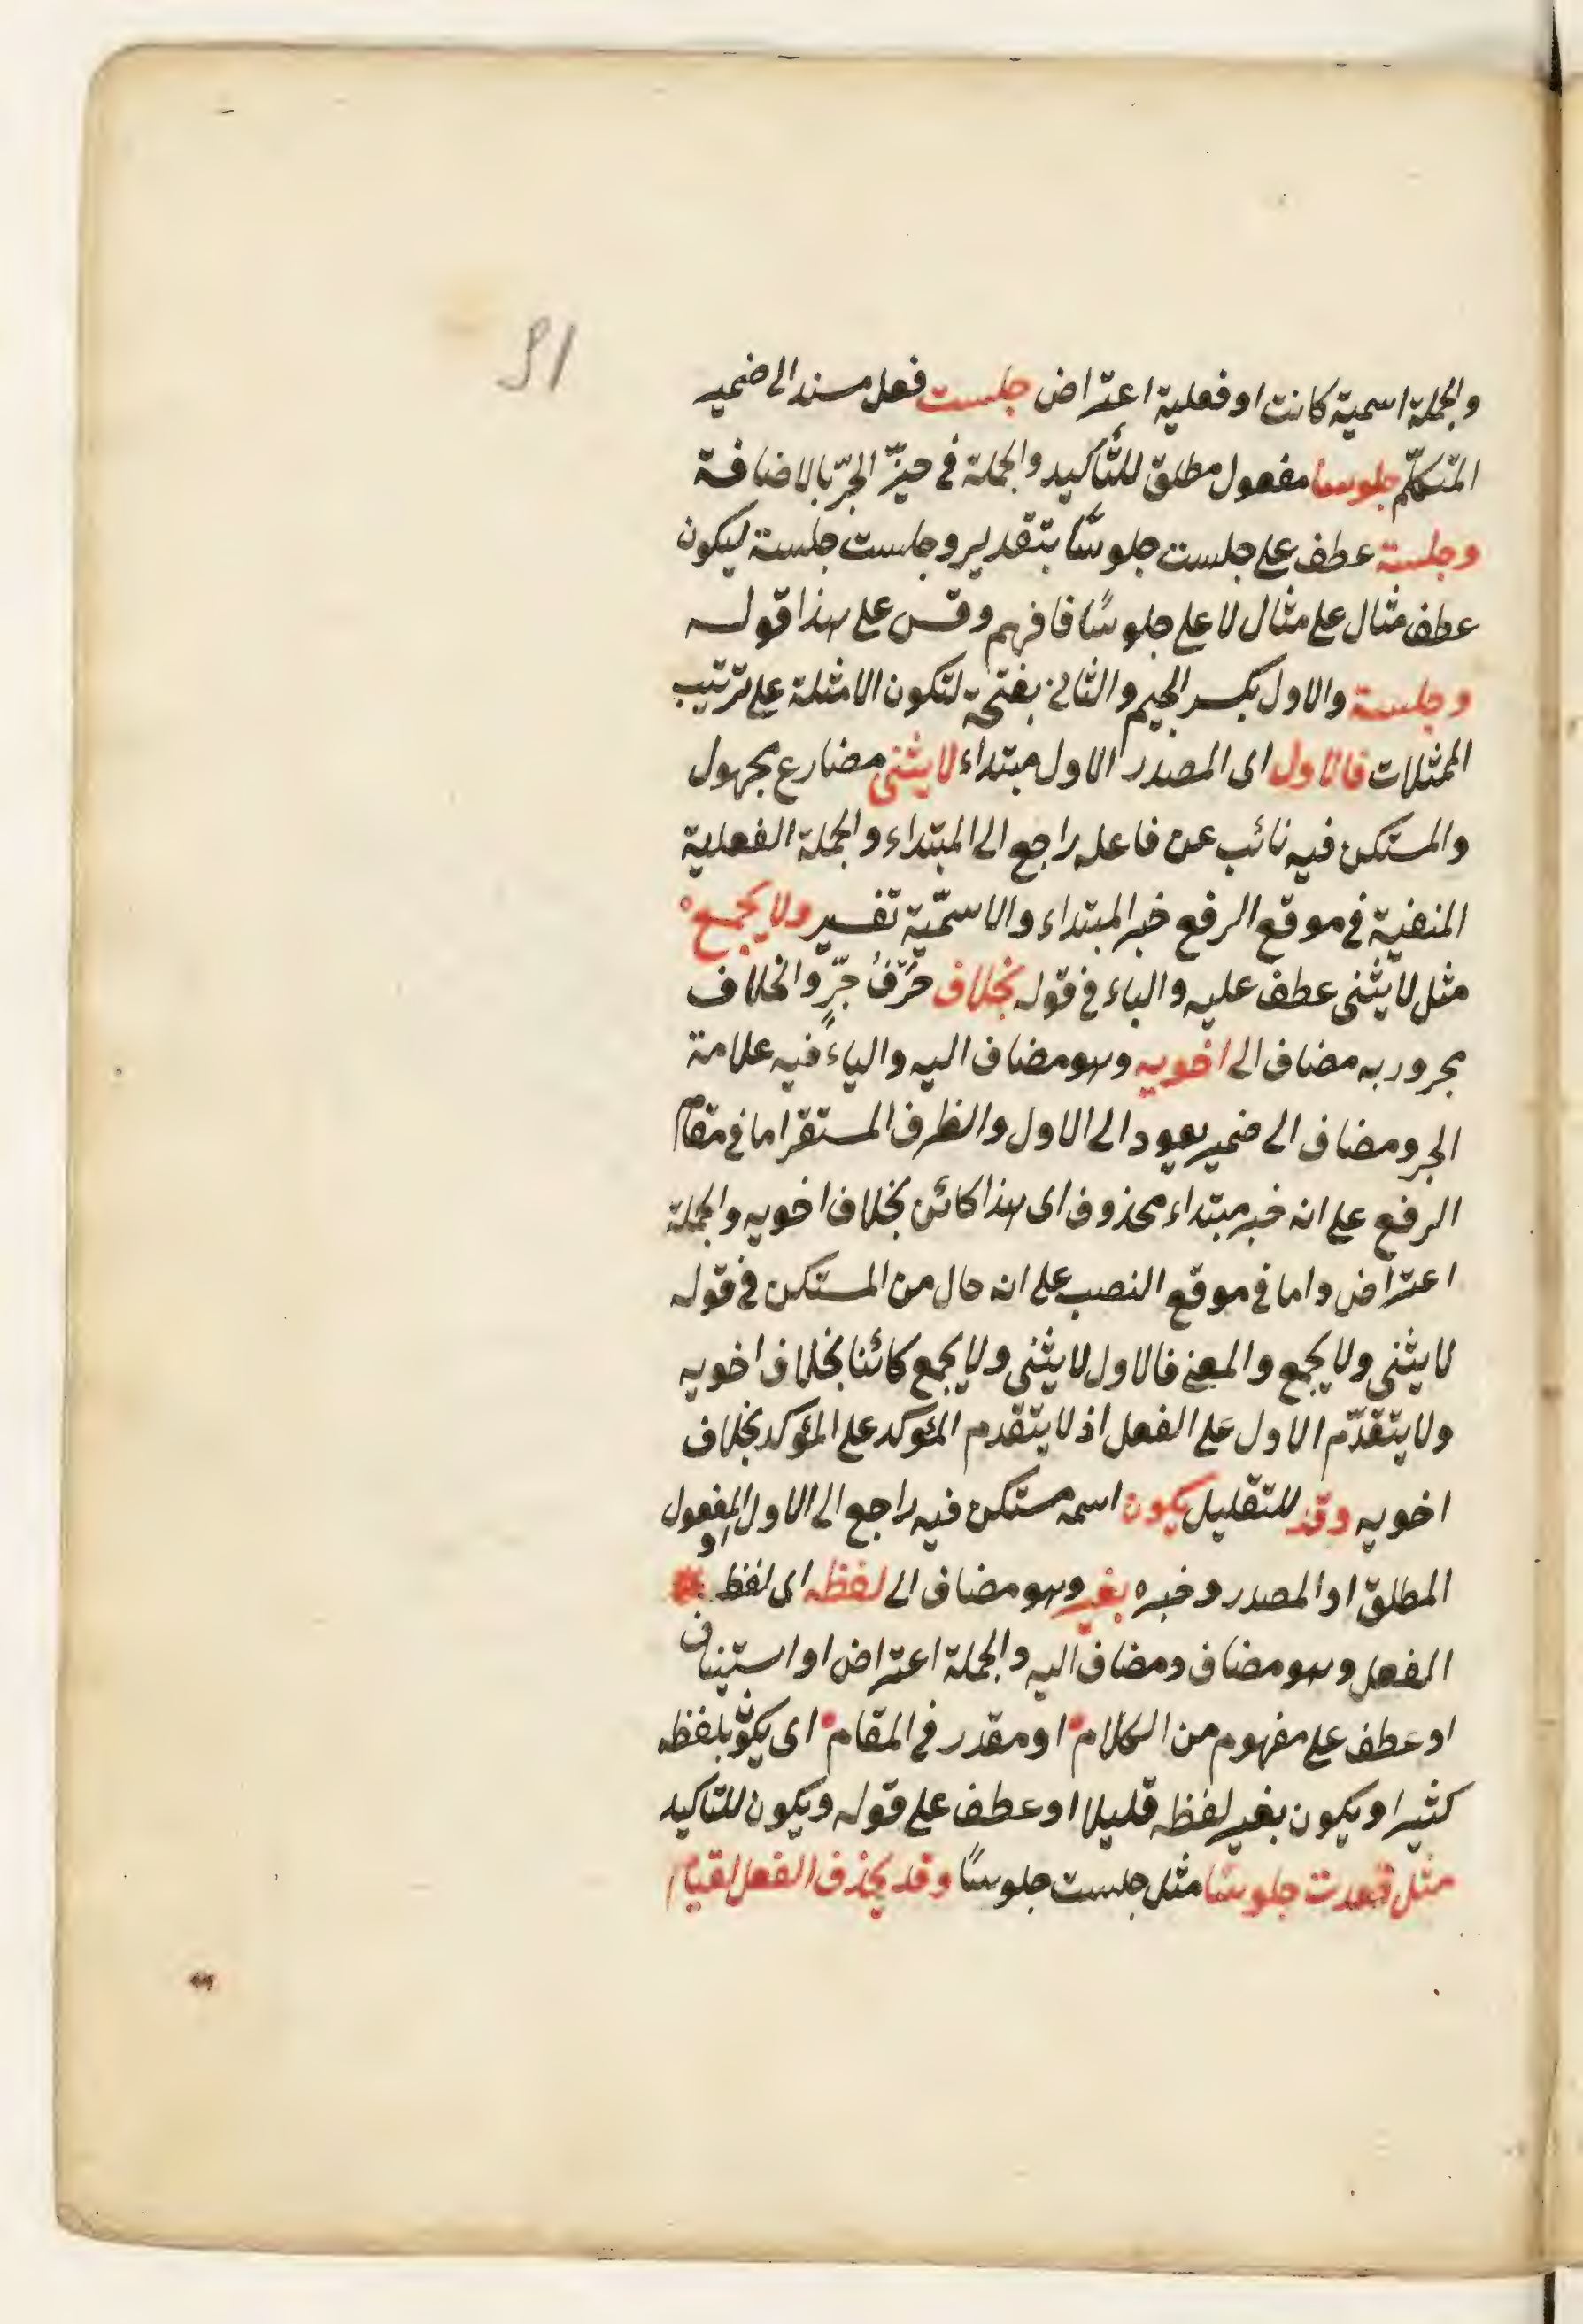 51
والجملة اسمية كانت او فعلية اعتراض جلست فعل مسند الى ضمير
المتكلّم جلوسا مفعول مطلق للتّأكيد والجملة فى حيزّ الجرّ بالاضافة
وجلسة عطف على جلست جلوسًا بتقدير وجلست جلسة ليكون
عطف مثال على مثال لا على جلوسًا فافهم وقس على هذا قوله
وجلسة والاول بكسر الجيم والثانى بفتحة لتكون الامثلة على ترتيب
الممثلات فالاول اى المصدر الاول مبتداء لا يثنى مضارع مجهول
والمستكن فيه نائب عن فاعله راجع الى المبتداء والجملة الفعلية
المنفية فى موقع الرفع خبر المبتداء والاسمّية تفسير ولا يجمع
مثل لا يثنى عطف عليه والباء فى قوله بخلاف حَرْفُ جرٍّ والخلاف
مجرور به مضاف الى اخويه وهو مضاف اليه والياء فيه علامة
الجر ومضاف الى ضمير يعود الى الاول والظرف المستقر اما فى مقام
الرفع على انه خبر مبتداء محذوف اى هذا كائن بخلاف اخويه والجملة
اعتراض واما فى موقع النصب على انه حال من المستكن فى قوله
لا يثنى ولا يجمع والمعنى فالاول لا يثنى ولا يجمع كائنا بخلاف اخويه
ولا يتقدّم الاول على الفعل اذ لا يتقدم المؤكد على المؤكد بخلاف
اخويه وقد للتقليل يكون اسمه مستكن فيه راجع الى الاول او المفعول
المطلق او المصدر وخبره بغير وهو مضاف الى لفظه اى لفظ
الفعل وهو مضاف ومضاف اليه والجملة اعتراض او استيناف
او عطف على مفهوم من الكلام او مقدر فى المقام اى يكون بلفظه
كثيرا ويكون بغير لفظه قليلا او عطف على قوله ويكون للتاكيد
مثل قعدت جلوسًا مثل جلست جلوسًا وقد يحذف الفعل لقيام